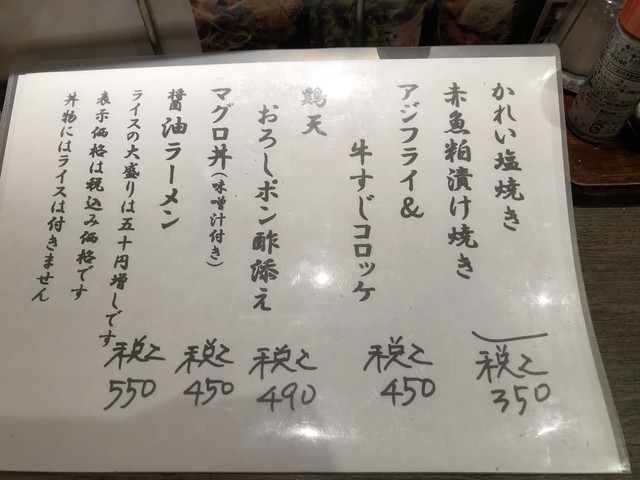 かれい塩焼き
赤魚粕漬け焼き
税込
350
アジフライ&
牛すじコロッケ
税込
450
鶏天
おろしポン酢添え
税込
490
マグロ丼(味噌汁付き)
税込
450
醤油ラーメン
税込
550
ライスの大盛りは五十円増しです
表示価格は税込み価格です
丼物にはライスは付きません